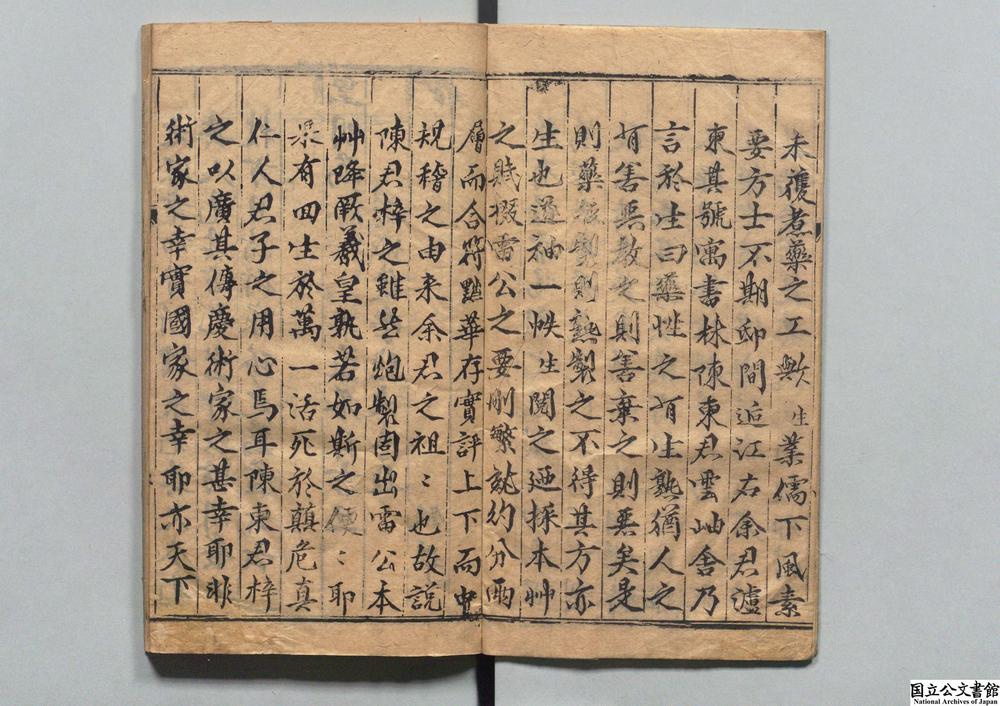 未復煮藥之工歟生業儒下風素
要方士不期邸間近江右余君瀘
東其號寓書林陳東君雲岫舍乃
言於生曰藥性之有生熟猶人之
有善惡教之則善棄之則惡矣是
則藥製則熟製之不得其方亦
生也道袖一帙生閱之廼採本艸
之賦掇雷公之要刪繁就約分兩
層而合符黜華存實評上下而中
規稽之由来余君之祖〻也故説
陳君梓之雖炮製固出雷公本
艸降厥羲皇孰若如斯之便〻耶
杲有回生於萬一活死於顛危真
仁人君子之用心焉耳陳東君梓
之以廣其傳慶術家之甚幸耶非
術家之幸實國家之幸耶亦天下
国立公文書館
National Archives of Japan